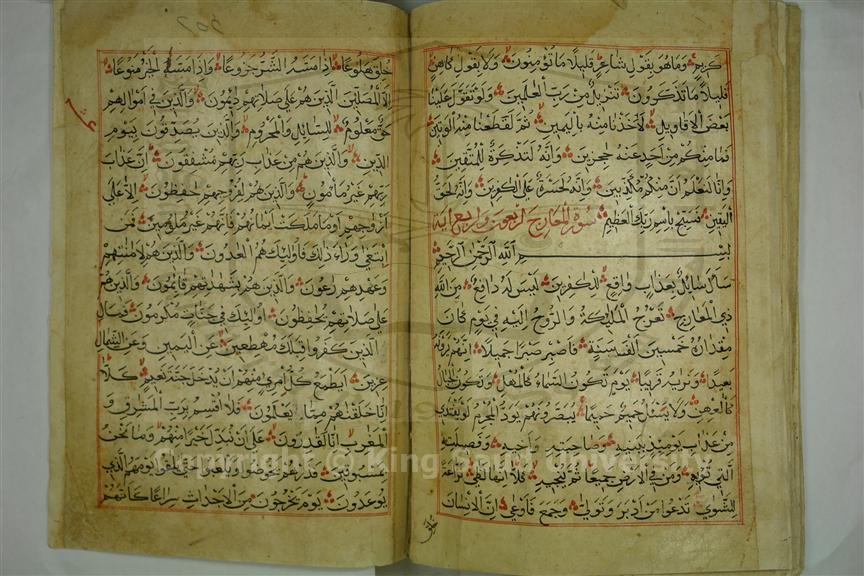 كريم وما هو بقول شاعر قليلا ما تؤمنون ولا بقول كاهن
قليلا ما تذكرون تنزيل من رب العلمين ولو تقول علينا
بعض الاقاويل لاخذنا منه باليمين ثم لقطعنا منه الوتين
فما منكم من احد عنه حجزين وانه لتذكرة للمتقين
وانا لنعلم ان منكم مكذبين وانه لحسرة على الكفرين وانه لحق
اليقين فسبح باسم ربك العظيم سورة المعارج اربعون واربع اية
بسم الله الرحمن الرحيم
سال سائل بعذاب واقع للكفرين ليس له دافع من الله
ذي المعارج تعرج الملئكة والروح اليه في يوم كان
مقداره خمسين الف سنة فاصبر صبرا جميلا انهم يرونه
بعيدا ونريه قريبا يوم تكون السماء كالمهل وتكون الجبال
كالعهن ولا يسئل حميم حميما يبصرونهم يود المجرم لو يفتدي
من عذاب يومئذ ببنيه وصاحبته واخيه وفصيلته
التي تؤيه ومن في الارض جميعا ثم ينجيه كلا انها لظى نزاعة
للشوى تدعوا من ادبر وتولى وجمع فاوعى ان الانسان
خلق
خلق هلوعا اذا مسه الشر جزوعا واذا مسه الخير منوعا
الا المصلين الذين هم على صلاتهم دائمون والذين في اموالهم
حق معلوم للسائل والمحروم والذين يصدقون بيوم
الدين والذين هم من عذاب ربهم مشفقون ان عذاب
ربهم غير مامون والذين هم لفروجهم حفظون الا على
ازواجهم او ما ملكت ايمانهم فانهم غير ملومين فمن
ابتغى وراء ذلك فاولئك هم العدون والذين هم لاماناتهم
وعهدهم راعون والذين هم بشهداتهم قائمون والذين هم
على صلاتهم يحفظون اولئك في جنات مكرمون فمال
الذين كفروا قبلك مهطعين عن اليمين وعن الشمال
عزين ايطمع كل امرئ منهم ان يدخل جنة نعيم كلا
انا خلقنهم مما يعلمون فلا اقسم برب المشرق و
المغرب انا لقدرون على ان نبدل خيرا منهم وما نحن
بمسبوقين فذرهم يخوضوا ويلعبوا حتى يلقوا يومهم الذي
يوعدون يوم يخرجون من الاجداث سراعا كانهم
Copyright © King Saud University